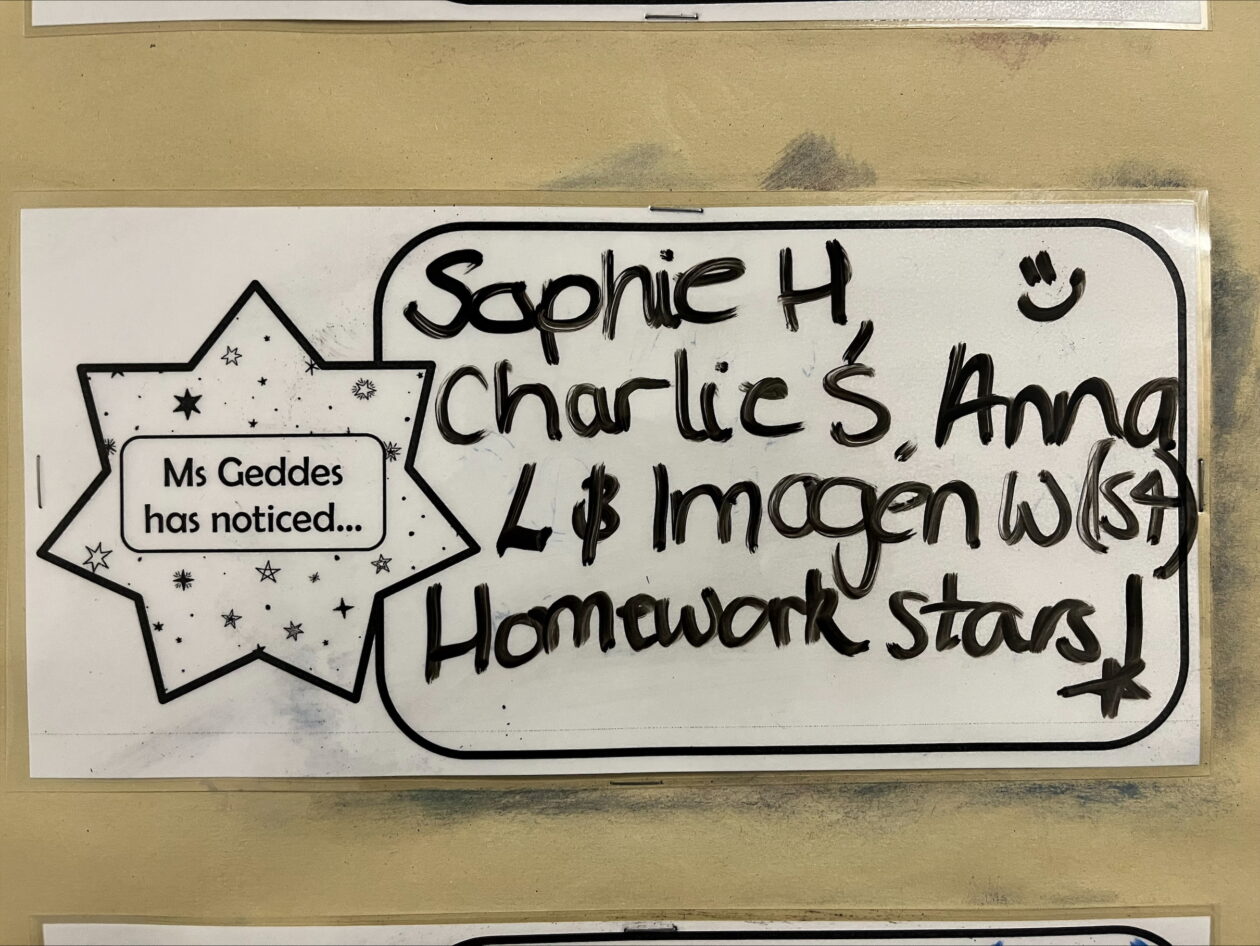 Ms Geddes
has noticed...
Sophie H,
Charlie S, Anna
L & Imogen W (S4)
Homework stars!